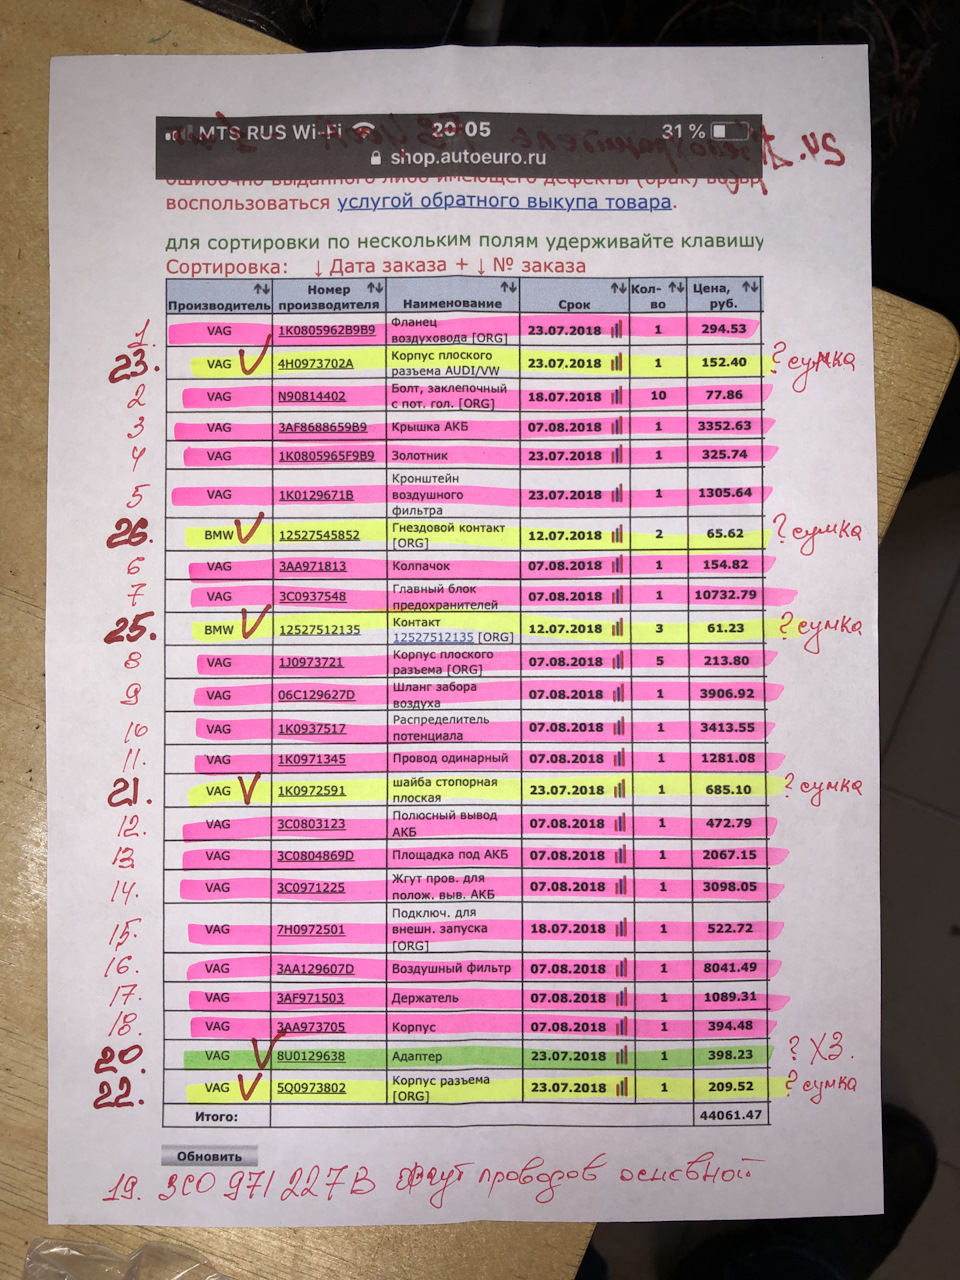 MTS RUS Wi-Fi 20:05 31 %
shop.autoeuro.ru
ошибочно выданного либо имеющего дефекты (брак)
воспользоваться услугой обратного выкупа товара.
для сортировки по нескольким полям удерживайте клавишу
Сортировка: ↓ Дата заказа + ↓ № заказа
Производитель Номер производителя Наименование Срок Кол-во Цена, руб.
1. VAG 1K0805962B9B9 Фланец воздуховода [ORG] 23.07.2018 1 294.53
23. VAG 4H0973702A Корпус плоского разъема AUDI/VW 23.07.2018 1 152.40 ? сумка
2 VAG N90814402 Болт, заклепочный с пот. гол. [ORG] 18.07.2018 10 77.86
3 VAG 3AF8688659B9 Крышка АКБ 07.08.2018 1 3352.63
4 VAG 1K0805965F9B9 Золотник 23.07.2018 1 325.74
5 VAG 1K0129671B Кронштейн воздушного фильтра 23.07.2018 1 1305.64
26. BMW 12527545852 Гнездовой контакт [ORG] 12.07.2018 2 65.62 ? сумка
6 VAG 3AA971813 Колпачок 07.08.2018 1 154.82
7 VAG 3C0937548 Главный блок предохранителей 07.08.2018 1 10732.79
25. BMW 12527512135 Контакт 12527512135 [ORG] 12.07.2018 3 61.23 ? сумка
8 VAG 1J0973721 Корпус плоского разъема [ORG] 07.08.2018 5 213.80
9 VAG 06C129627D Шланг забора воздуха 07.08.2018 1 3906.92
10 VAG 1K0937517 Распределитель потенциала 07.08.2018 1 3413.55
11. VAG 1K0971345 Провод одинарный 07.08.2018 1 1281.08
21. VAG 1K0972591 шайба стопорная плоская 23.07.2018 1 685.10 ? сумка
12. VAG 3C0803123 Полюсный вывод АКБ 07.08.2018 1 472.79
13. VAG 3C0804869D Площадка под АКБ 07.08.2018 1 2067.15
14. VAG 3C0971225 Жгут пров. для полож. выв. АКБ 07.08.2018 1 3098.05
15. VAG 7H0972501 Подключ. для внешн. запуска [ORG] 18.07.2018 1 522.72
16. VAG 3AA129607D Воздушный фильтр 07.08.2018 1 8041.49
17. VAG 3AF971503 Держатель 07.08.2018 1 1089.31
18. VAG 3AA973705 Корпус 07.08.2018 1 394.48
20. VAG 8U0129638 Адаптер 23.07.2018 1 398.23 ? ХЗ.
22. VAG 5Q0973802 Корпус разъема [ORG] 23.07.2018 1 209.52 ? сумка
Итого: 44061.47
Обновить
19. 3C0 971 227B Жгут проводов основной